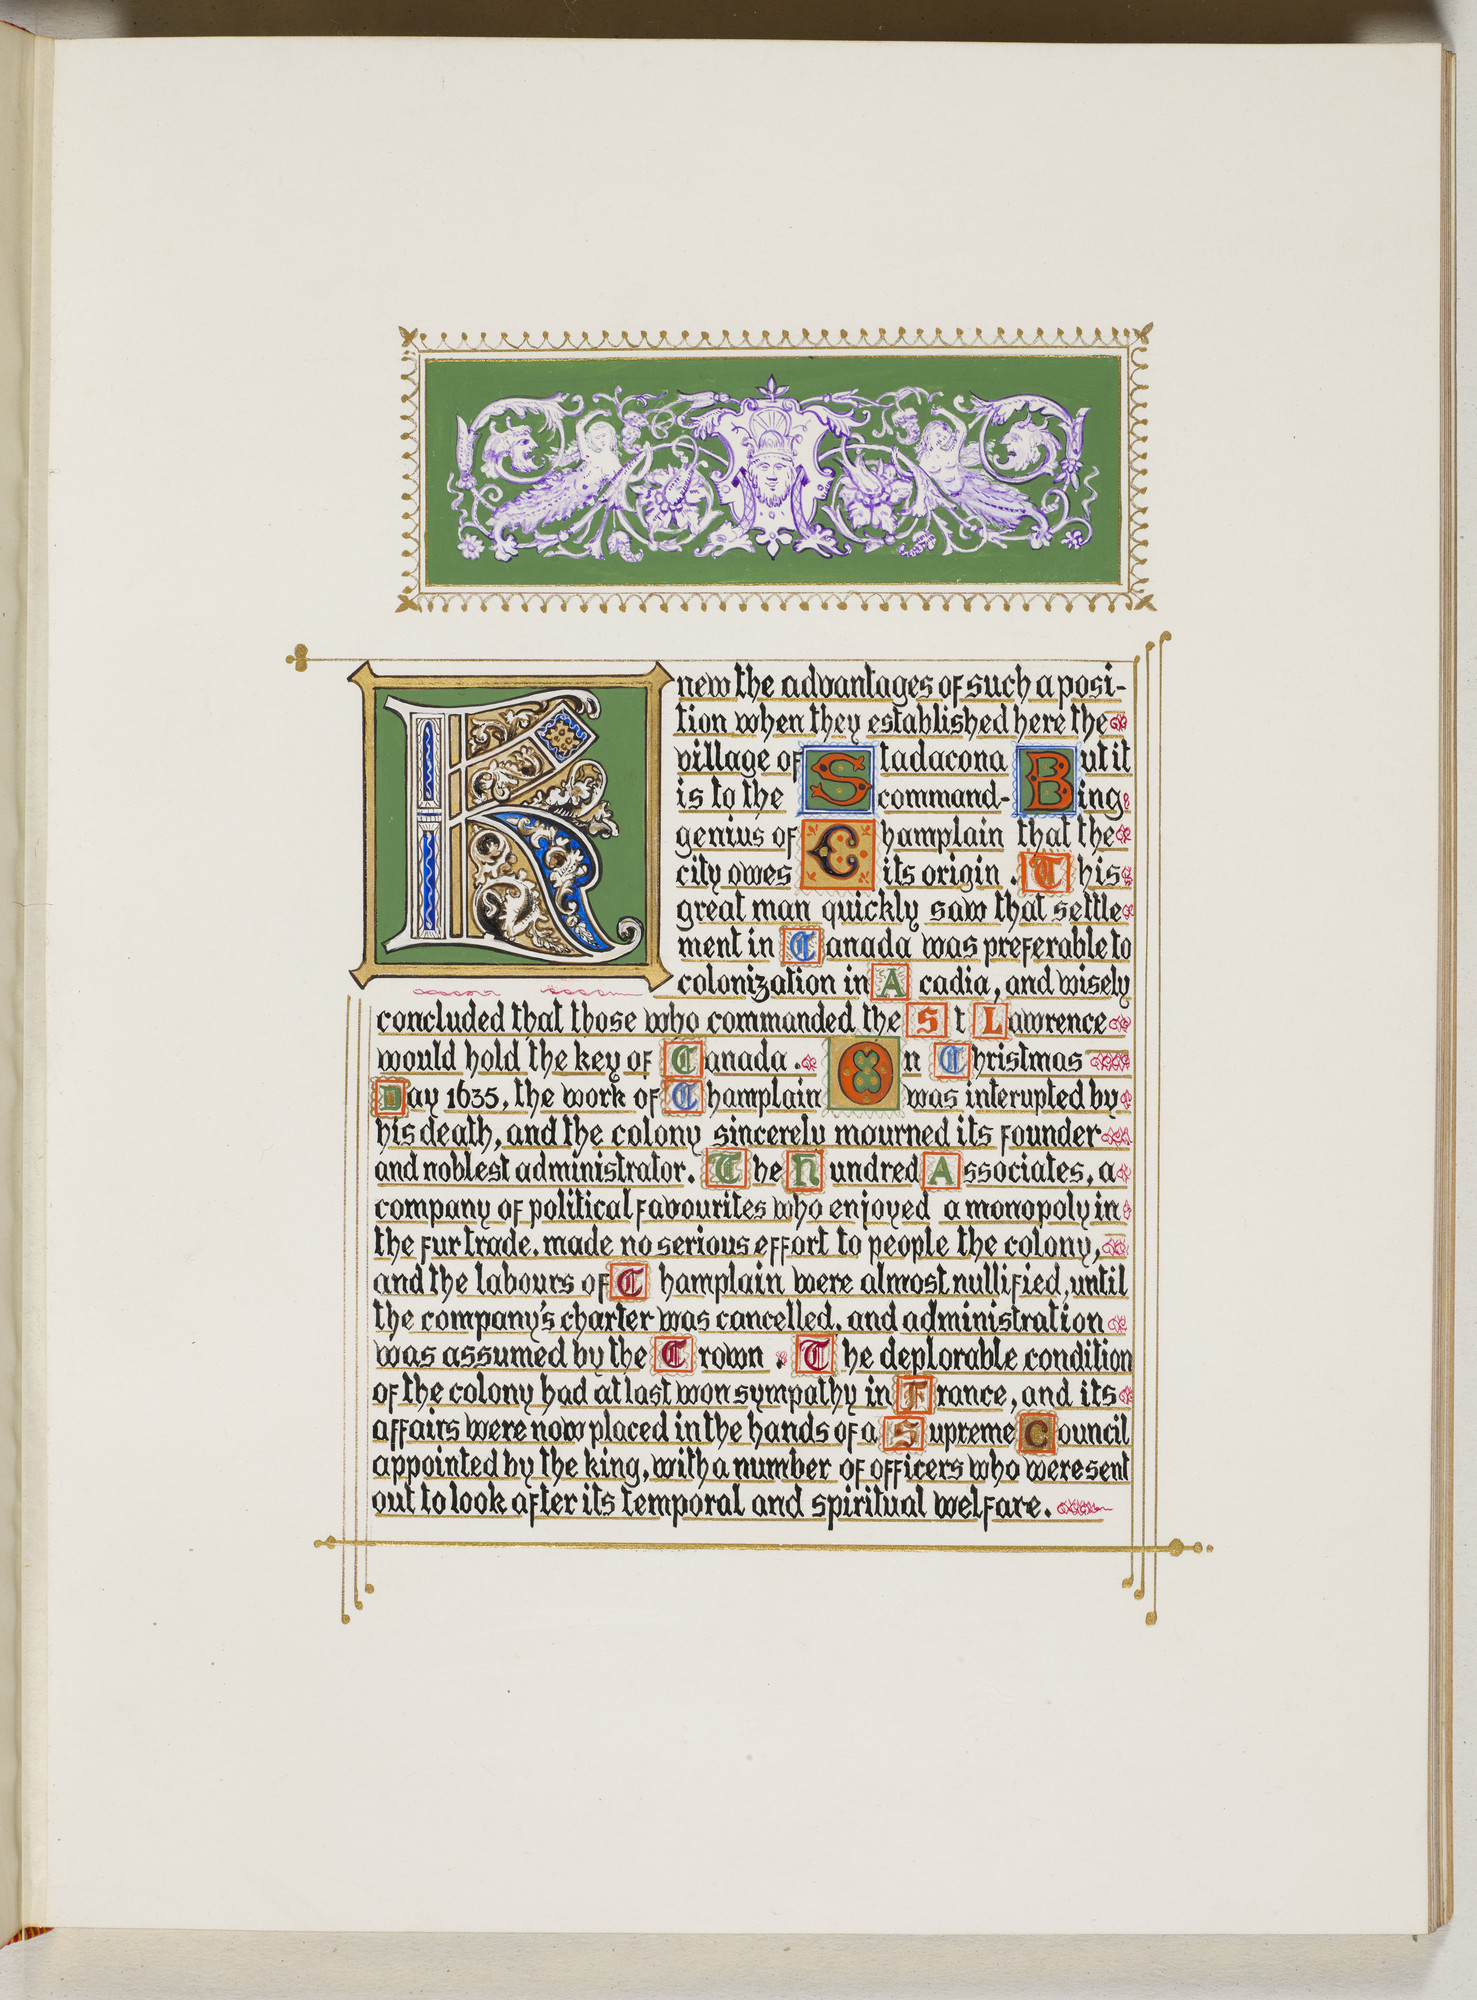 Knew the advantages of such a posi-
tion when they established here the
village of Stadacona But it
is to the command-ing
genius of Champlain that the
city owes its origin. This
great man quickly saw that settle
ment in Canada was preferable to
colonization in Acadia, and wisely
concluded that those who commanded the St Lawrence
would hold the key of Canada. On Christmas
Day 1635, the work of Champlain was interupted by
his death, and the colony sincerely mourned its founder
and noblest administrator. The Hundred Associates, a
company of political favourites who enjoyed a monopoly in
the fur trade, made no serious effort to people the colony,
and the labours of Champlain were almost nullified, until
the company's charter was cancelled, and administration
was assumed by the Crown. The deplorable condition
of the colony had at last won sympathy in France, and its
affairs were now placed in the hands of a Supreme Council
appointed by the king, with a number of officers who were sent
out to look after its temporal and spiritual welfare.